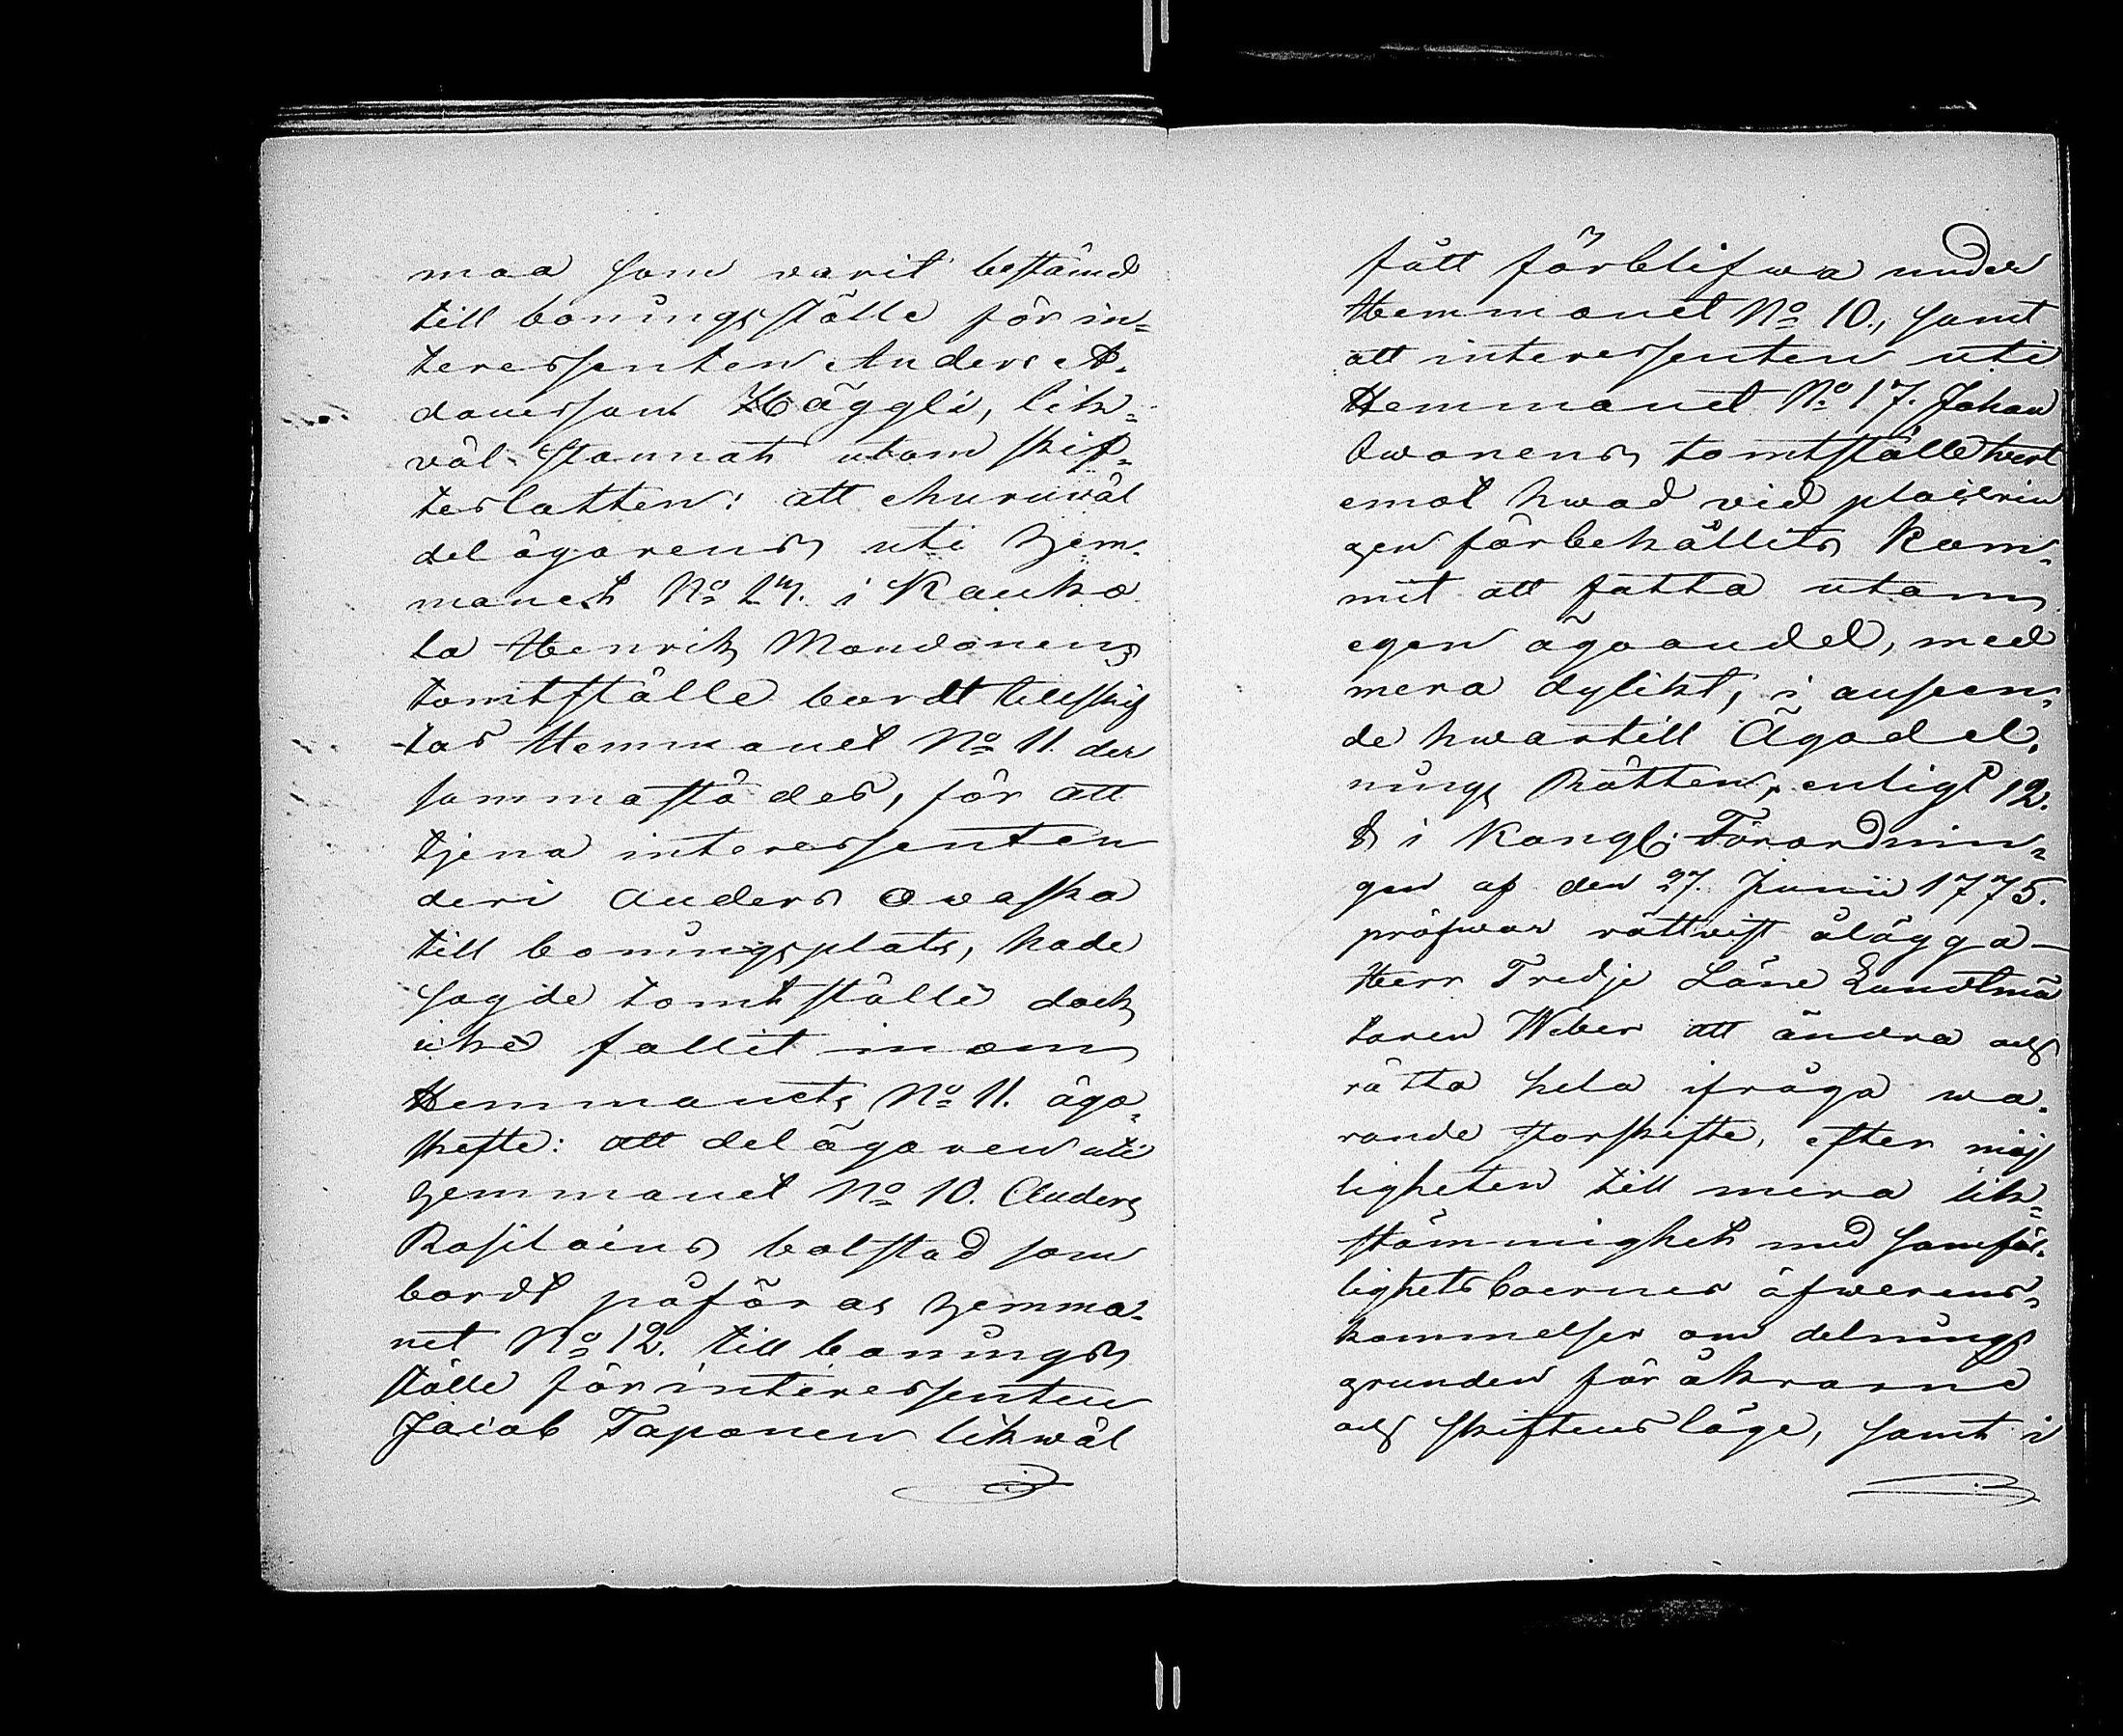 maa som varit bestämd
till boningsställe för in=
teressenten Anders A.
damsson Häggli, lik=
väl stannat utom skif=
teslotten: att ehuruwäl
delägarens uti hem.
manet No 2. i Kauko
la Henrik Mandonens
tomtställe bordt tillskif
tas Hemmanet No 11. der
sammastädes, för att
tjena interessenten
deri Anders Owaska
till boningsplats, hade
sagde tomtställe dock
icke fallit inom
Hemmanets No 11. ägo=
skefte: att delägaren uti
hemmanet No 10. Anders
Rasilains bolstad som
bordt påföras hemma=
net No 12. till bonings
ställe för interessenten
Jacob Taponen likwäl
fått förblifwa under
Hemmanet No 10., samt
att interessenten uti
Hemmanet No 17. Johan
Owanens tomtställe twert
emot hwad vid placerin
gen förbehållits kom=
mit att fatta utom
egen ägoandel, med
mera dylikt, i anseen=
de hwartill Ägodel.
nings Rätten, enligt 12.
§ i Kongl. Förordnin=
gen af den 27. Junii 1775.
pröfwar rättvist ålägga
Herr Tredje Läne Landtmä
taren Weber att ändra och
rätta hela ifråga wa.
rande storskifte, efter möj
ligheten till mera lik=
stämmighet med samfäl.
lighetsboernes öfwerens=
kommelser om delnings
grunden för åkrarne
och skiftens läge, samt i